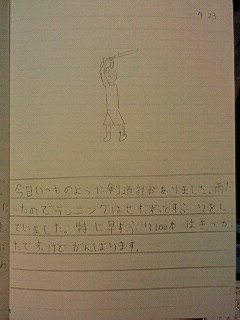 9.23
今日いつものように剣道部がありました。雨だ
ったのでランニングはせず、ずっとすぶりをし
ていました。特に早すぶり100本はきつかっ
たですけどがんばります。